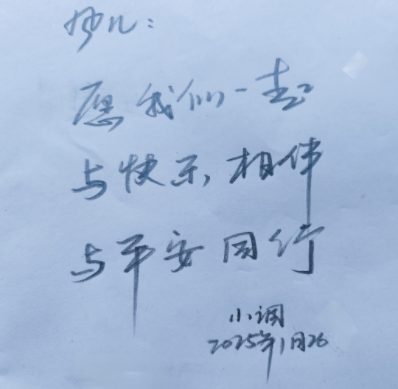 妙儿：
愿我们一起
与快乐，相伴
与平安同行
小调
2025年1月26